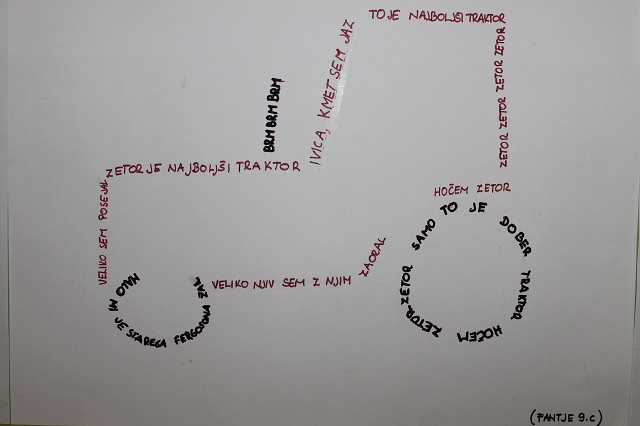 TO JE NAJBOLJŠI TRAKTOR
ZETOR ZETOR ZETOR ZETOR ZETOR
IVICA, KMET SEM JAZ
BRM BRM BRM
ZETOR JE NAJBOLJŠI TRAKTOR
HOČEM ZETOR
VELIKO SEM POSEJAL
SAMO TO JE DOBER TRAKTOR HOČEM ZETOR ZETOR
ZAORAL
VELIKO NJIV SEM Z NJIM
MALO MI JE STAREGA FERGUSONA ŽAL
(FANTJE 9.C)